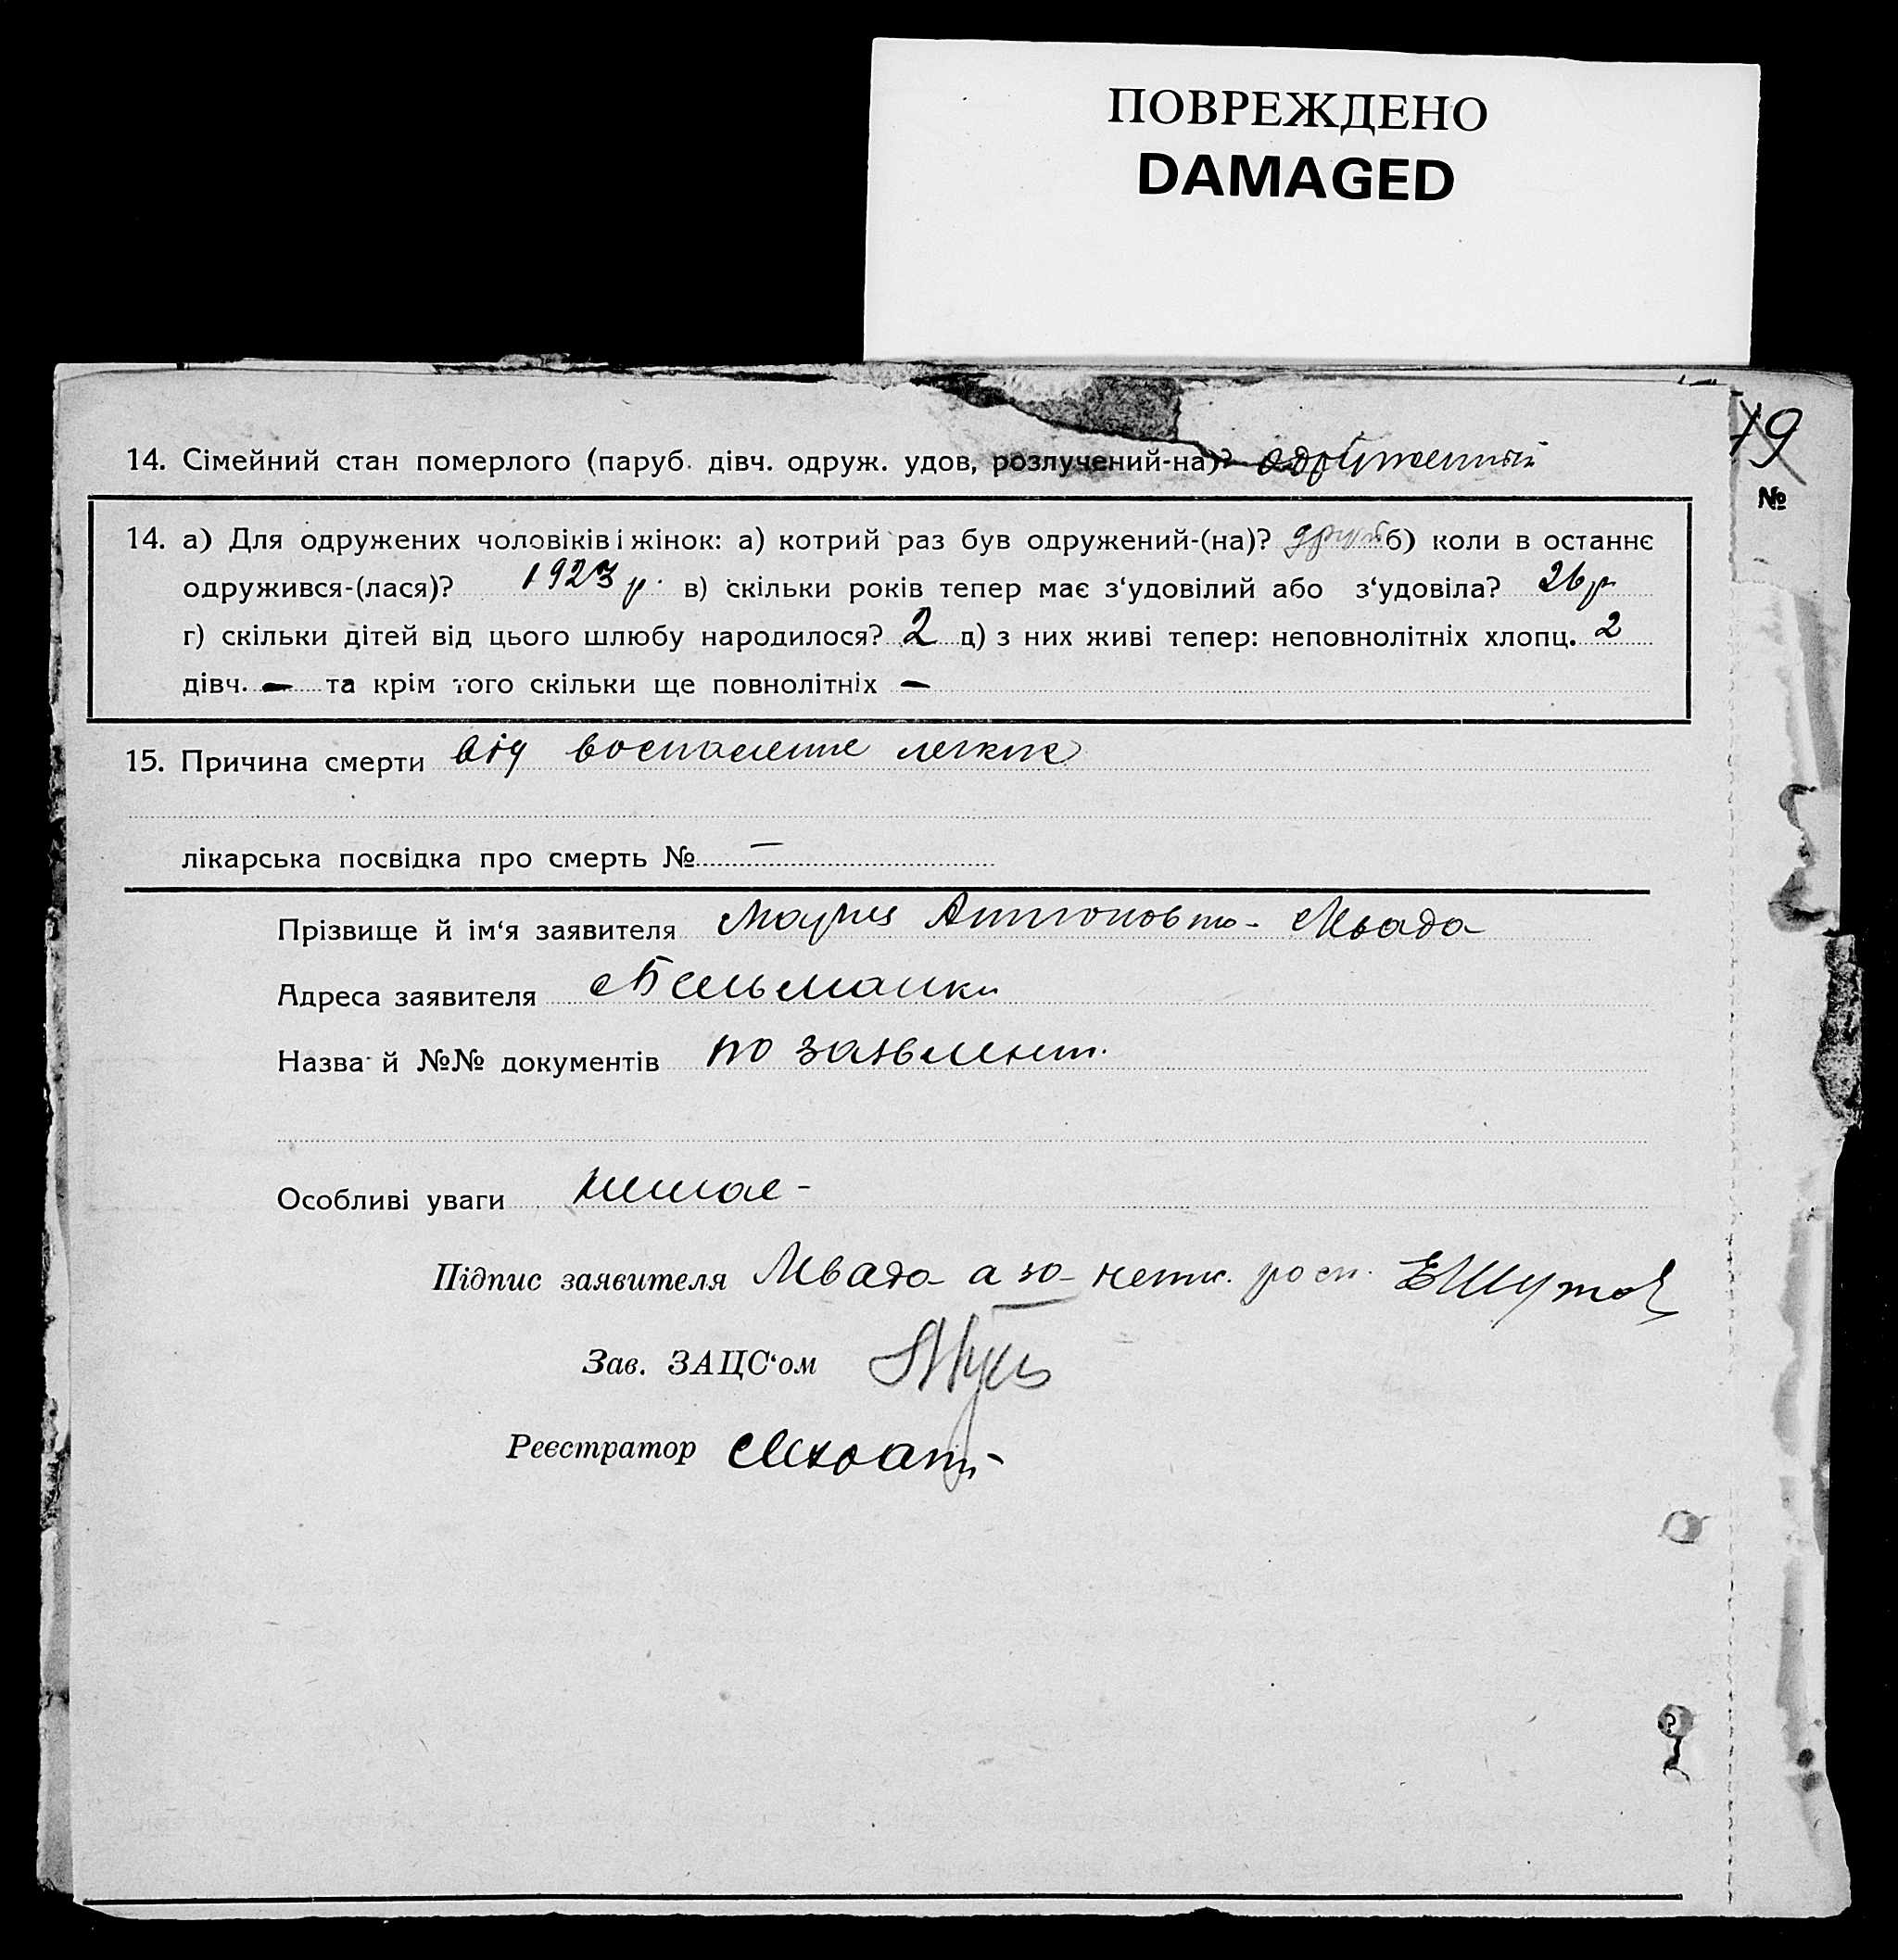 ПОВРЕЖДЕНО
DAMAGED
19
№
14. Сімейний стан померлого (паруб. дівч. одруж. удов, розлучений-на)? одруженний
14. а) Для одружених чоловіків і жінок: а) котрий раз був одружений-(на)? другий б) коли в останнє
одружився-(лася)? 1923 р. в) скільки років тепер має з‘удовілий або з‘удовіла? 26 р
г) скільки дітей від цього шлюбу народилося? 2 д) з них живі тепер: неповнолітніх хлопц. 2
дівч. — та крім того скільки ще повнолітніх —
15. Причина смерти від воспаление легких
лікарська посвідка про смерть № —
Прізвище й ім‘я заявителя Мария Антоновна
Адреса заявителя Бельманки
Назва й №№ документів по заявлению
Особливі уваги немае -
Підпис заявителя а за негр. росп.
Зав. ЗАЦС‘ом
Реєстратор